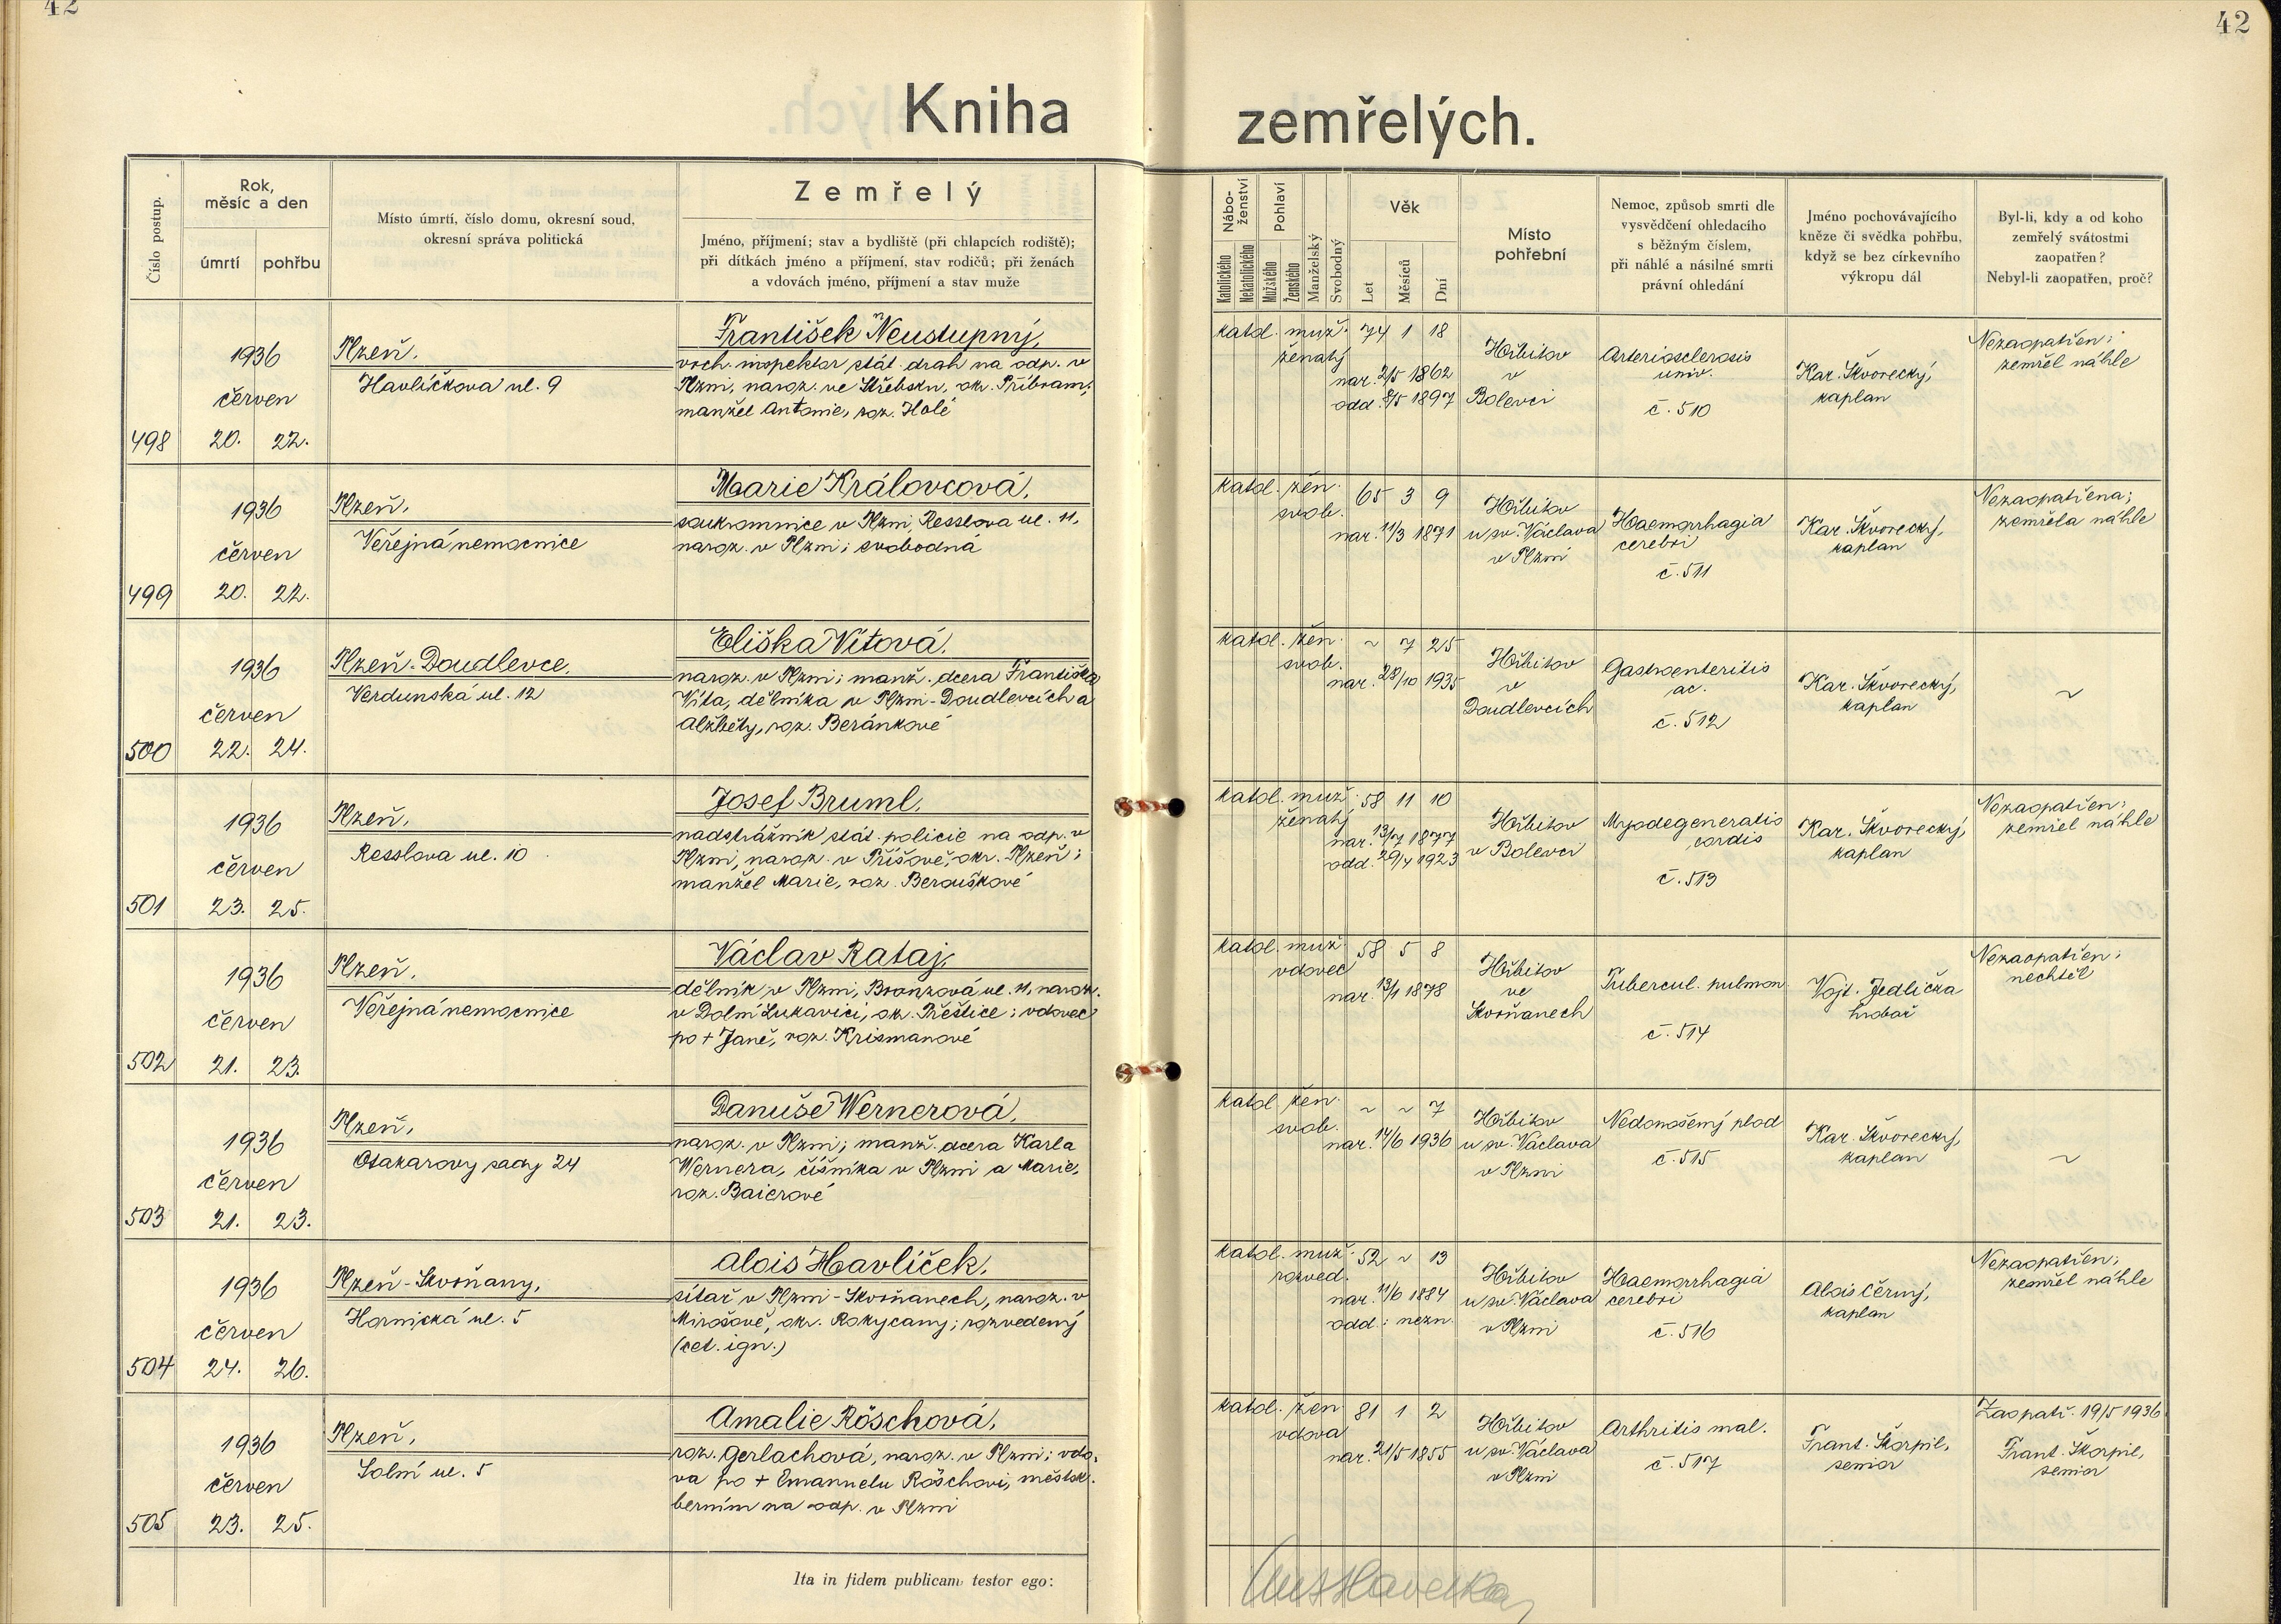 42
42
Kniha zemřelých.
Číslo postup.
Rok,
měsíc a den
úmrtí
pohřbu
Místo úmrtí, číslo domu, okresní soud,
okresní správa politická
Zemřelý
Jméno, příjmení; stav a bydliště (při chlapcích rodiště);
při dítkách jméno a příjmení, stav rodičů; při ženách
a vdovách jméno, příjmení a stav muže
Nábo-
ženství
Katolického
Nekatolického
Pohlaví
Mužského
Ženského
Manželský
Svobodný
Věk
Let
Měsíců
Dní
Místo
pohřební
Nemoc, způsob smrti dle
vysvědčení ohledacího
s běžným číslem,
při náhlé a násilné smrti
právní ohledání
Jméno pochovávajícího
kněze či svědka pohřbu,
když se bez církevního
výkropu dál
Byl-li, kdy a od koho
zemřelý svátostmi
zaopatřen?
Nebyl-li zaopatřen, proč?
498
1936
červen
20. 22.
Plzeň,
Havlíčkova ul. 9
František Neustupný,
vrch. inspektor stát. drah na odp. v
Plzni, naroz. ve Střebsku, okr. Příbram;
manžel Antonie, roz. Holé
katol. muž. 74 1 18
ženatý
nar. 2/5 1862
odd. 8/5 1897
Hřbitov
v
Bolevci
Arteriosclerosis
univ.
č. 510
Kar. Škvorecký,
kaplan
Nezaopatřen;
zemřel náhle
499
1936
červen
20. 22.
Plzeň,
Veřejná nemocnice
Maarie Královcová,
soukromnice v Plzni, Resslova ul. 11,
naroz. v Plzni; svobodná
katol. žen. 65 3 9
svob.
nar. 11/3 1871
Hřbitov
u sv. Václava
v Plzni
Haemorrhagia
cerebri
č. 511
Kar. Škvorecký,
kaplan
Nezaopatřena;
zemřela náhle
500
1936
červen
22. 24.
Plzeň-Doudlevce,
Verdunská ul. 12
Eliška Vítová,
naroz. v Plzni; manž. dcera Františka
Víta, dělníka v Plzni-Doudlevcích a
Alžběty, roz. Beránkové
katol. žen. ~ 7 25
svob.
nar. 28/10 1935
Hřbitov
v
Doudlevcích
Gastroenteritis
ac.
č. 512
Kar. Škvorecký,
kaplan
~
501
1936
červen
23. 25.
Plzeň,
Resslova ul. 10
Josef Bruml,
nadstrážník stát. policie na odp. v
Plzni, naroz. v Příšově, okr. Plzeň;
manžel Marie, roz. Berouškové
katol. muž. 58 11 10
ženatý
nar. 13/7 1877
odd. 29/4 1923
Hřbitov
v Bolevci
Myodegeneratio
cordis
č. 513
Kar. Škvorecký,
kaplan
Nezaopatřen;
zemřel náhle
502
1936
červen
21. 23.
Plzeň,
Veřejná nemocnice
Václav Rataj,
dělník v Plzni, Bronzová ul. 11, naroz.
v Dolní Lukavici, ok. Přeštice; vdovec
po + Janě, roz. Krismanové
katol. muž. 58 5 8
vdovec
nar. 13/1 1878
Hřbitov
ve
Skvrňanech
Tubercul. pulmon.
č. 514
Vojt. Jedlička
hrobař
Nezaopatřen;
nechtěl
503
1936
červen
21. 23.
Plzeň,
Otakarovy sady 24
Danuše Wernerová,
naroz. v Plzni; manž. dcera Karla
Wernera, číšníka v Plzni a Marie,
roz. Baierové
katol. žen. ~ ~ 7
svob.
nar. 14/6 1936
Hřbitov
u sv. Václava
v Plzni
Nedonošený plod
č. 515
Kar. Škvorecký,
kaplan
~
504
1936
červen
24. 26.
Plzeň-Skvrňany,
Hornická ul. 5
Alois Havlíček,
sítař v Plzni-Skvrňanech, naroz. v
Mirošově, okr. Rokycany; rozvedený
(cet. ign.)
katol. muž. 52 ~ 13
rozved.
nar. 11/6 1884
odd.: nezn.
Hřbitov
u sv. Václava
v Plzni
Haemorrhagia
cerebri
č. 516
Alois Černý,
kaplan
Nezaopatřen;
zemřel náhle
505
1936
červen
23. 25.
Plzeň,
Solní ul. 5
Amalie Röschová,
roz. Gerlachová, naroz. v Plzni; vdo-
va po + Emanuelu Röschovi, městsk.
berním na odp. v Plzni
katol. žen 81 1 2
vdova
nar. 21/5 1855
Hřbitov
u sv. Václava
v Plzni
Arthritis mal.
č. 517
Frant. Škorpil,
senior
Zaopatř. 19/5 1936
Frant. Škorpil,
senior
Ita in fidem publicam testor ego: